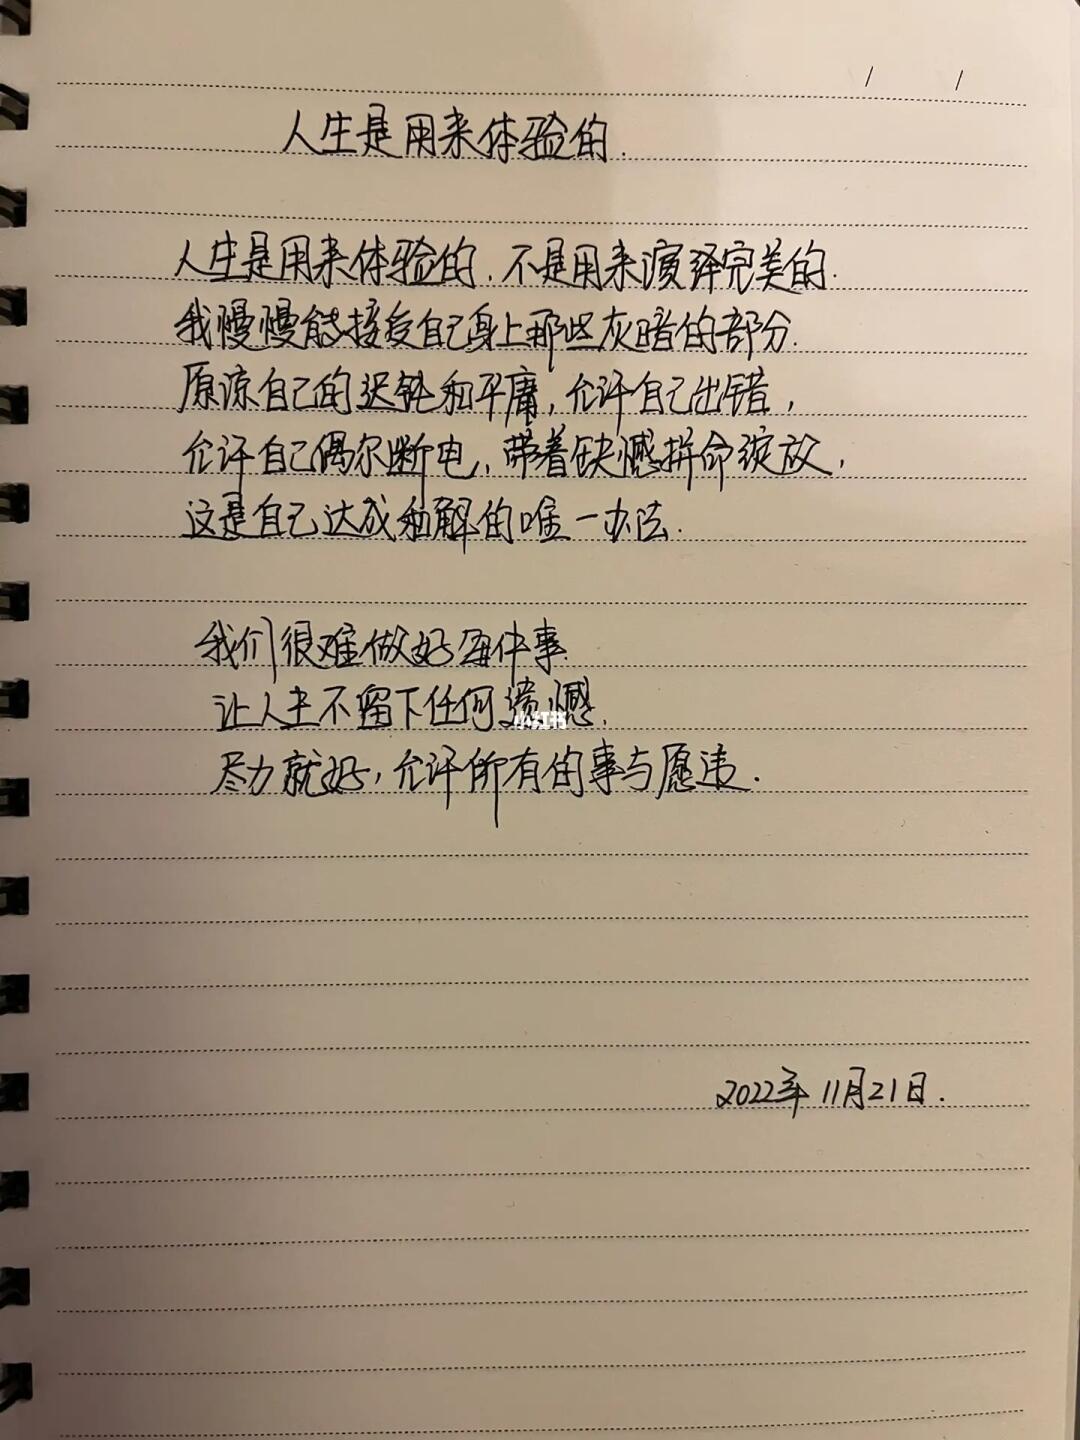 / /
人生是用来体验的.
人生是用来体验的.不是用来演译完美的.
我慢慢能接受自己身上那些灰暗的部分.
原谅自己的迟钝和平庸,允许自己出错,
允许自己偶尔断电,带着缺憾拼命绽放,
这是自己达成和解的唯一办法.
我们很难做好每件事.
让人生不留下任何遗憾.
小红书
尽力就好,允许所有的事与愿违.
2022年11月21日.